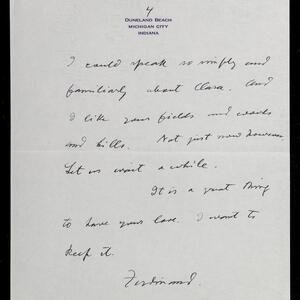 4
DUNELAND BEACH
MICHIGAN CITY
INDIANA
I could speak so simply and
familiarly about Clara. And
I like your fields and woods
and hills. Not just now however.
Let us wait a while.
It is a great thing
to have your love. I want to
keep it.
Ferdinand.